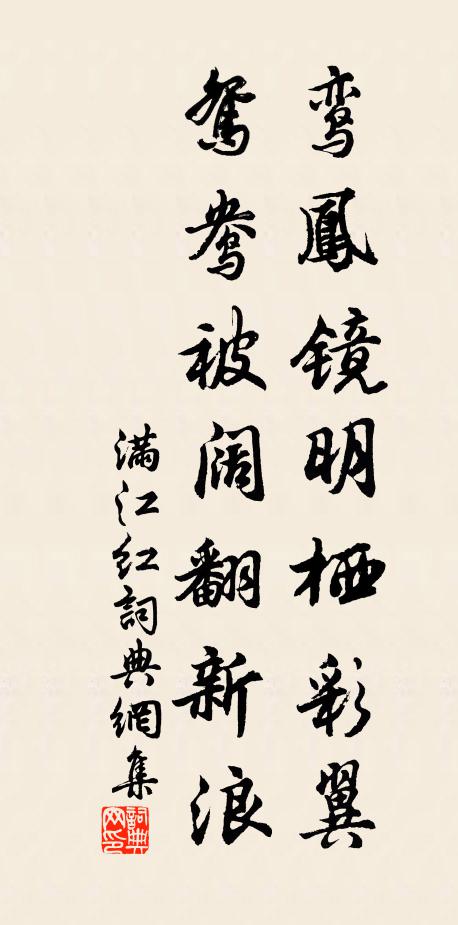 鸾鳳镜明栖彩翼
鸳鸯被阔翻新浪
满江红詞典網集
詞典网印